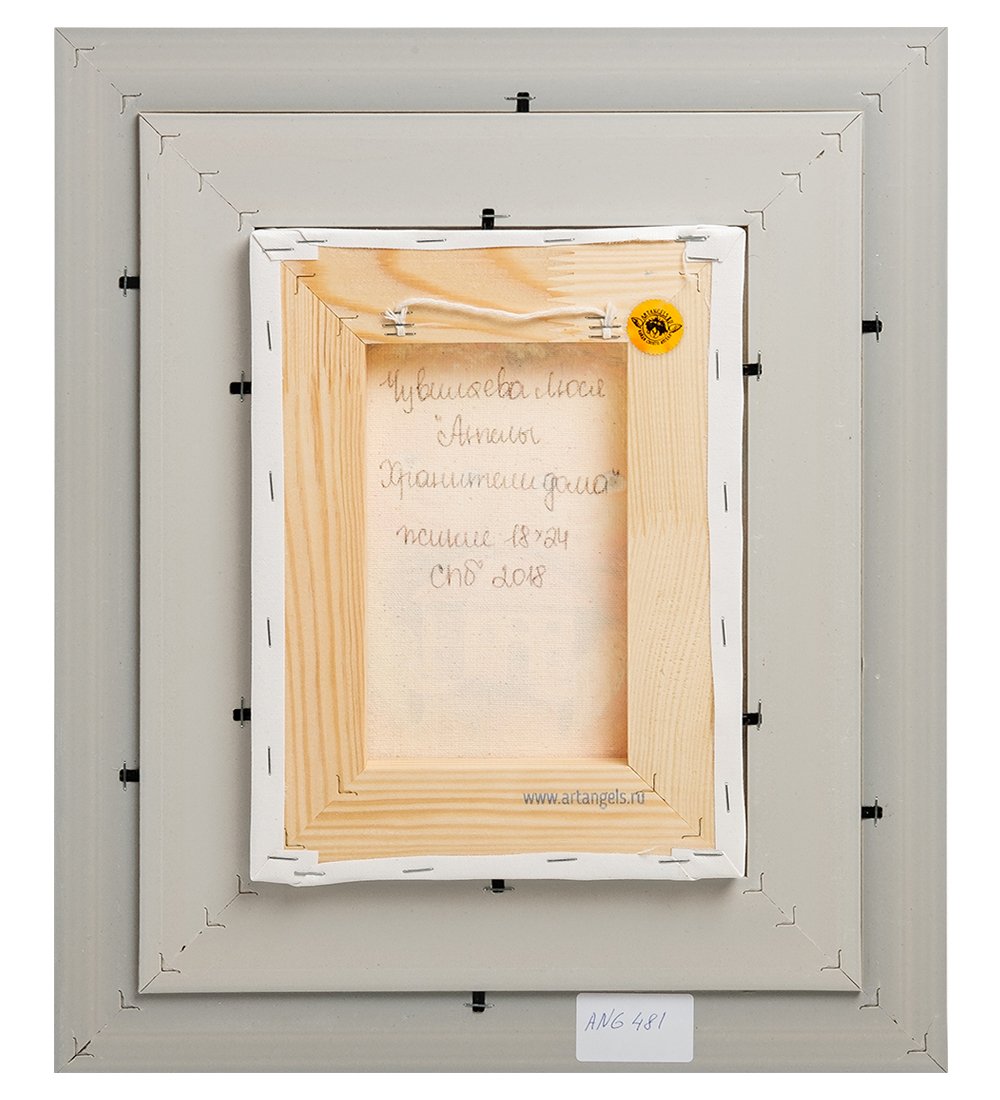 Чувиляева Люся
"Ангелы
Хранители дома"
холст 18×24
СПб 2018
www.artangels.ru
ANG 481